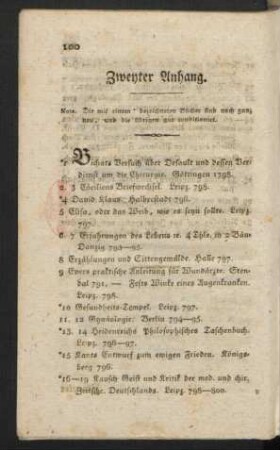 100
Zweyter Anhang.
Nota. Die mit einem * bezeichneten Bücher sind noch ganz
neu, und die übrigen gut conditionirt.
*1 Bichats Versuch über Desault und dessen Ver-
dienst um die Chirurgie. Göttingen 1798.
2. 3 Cäciliens Briefwechsel. Leipz. 796.
*4 David Klaus. Halberstadt 796.
5 Elisa, oder das Weib, wie es seyn sollte. Leipz.
797.
6. 7 Erfahrungen des Lebens ꝛc. 4 Thle. in 2 Bän-
Danzig 793—95.
8 Erzählungen und Sittengemälde. Halle 797.
9 Ewers praktische Anleitung für Wundärzte. Sten-
dal 791. — Feists Winke eines Augenkranken.
Leipz. 798.
*10 Gesundheits-Tempel. Leipz. 797.
11. 12 Gynäologie. Berlin 794—95.
*13. 14 Heidenreichs Philosophisches Taschenbuch.
Leipz. 796—97.
*15 Kants Entwurf zum ewigen Frieden. Königs-
berg 796.
*16—19 Rausch Geist und Kritik der med. und chir.
Zeitschr. Deutschlands. Leipz. 798—800.